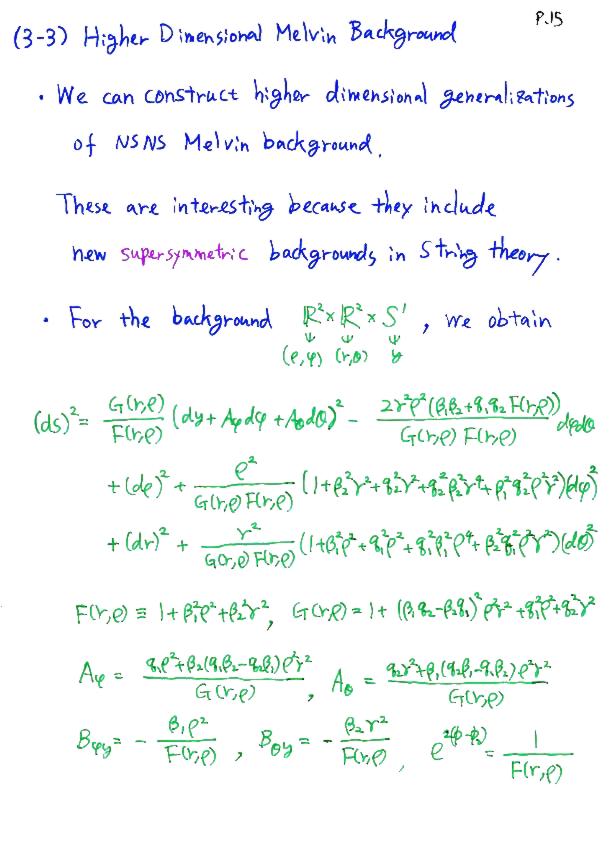 P.15
(3-3) Higher Dimensional Melvin Background
• We can construct higher dimensional generalizations
of NSNS Melvin background.
These are interesting because they include
new supersymmetric backgrounds in String theory.
• For the background ℝ² × ℝ² × S¹, we obtain
(ρ,φ) (r,θ) y
(ds)² = G(r,ρ)/F(r,ρ) (dy + A_φ dφ + A_θ dθ)² − 2r²ρ²(β₁β₂ + q₁q₂ F(r,ρ))/(G(r,ρ) F(r,ρ)) dφdθ
+ (dρ)² + ρ²/(G(r,ρ) F(r,ρ)) (1 + β₂²r² + q₂²r² + q₂²β₂²r⁴ + β₁²q₂²ρ²r²)(dφ)²
+ (dr)² + r²/(G(r,ρ) F(r,ρ)) (1 + β₁²ρ² + q₁²ρ² + q₁²β₁²ρ⁴ + β₂²q₁²ρ²r²)(dθ)²
F(r,ρ) ≡ 1 + β₁²ρ² + β₂²r², G(r,ρ) = 1 + (β₁q₂ − β₂q₁)²ρ²r² + q₁²ρ² + q₂²r²
A_φ = (q₁ρ² + β₂(q₁β₂ − q₂β₁)ρ²r²)/G(r,ρ), A_θ = (q₂r² + β₁(q₂β₁ − q₁β₂)ρ²r²)/G(r,ρ)
B_φy = − β₁ρ²/F(r,ρ), B_θy = − β₂r²/F(r,ρ), e^{2(φ−φ₀)} = 1/F(r,ρ)